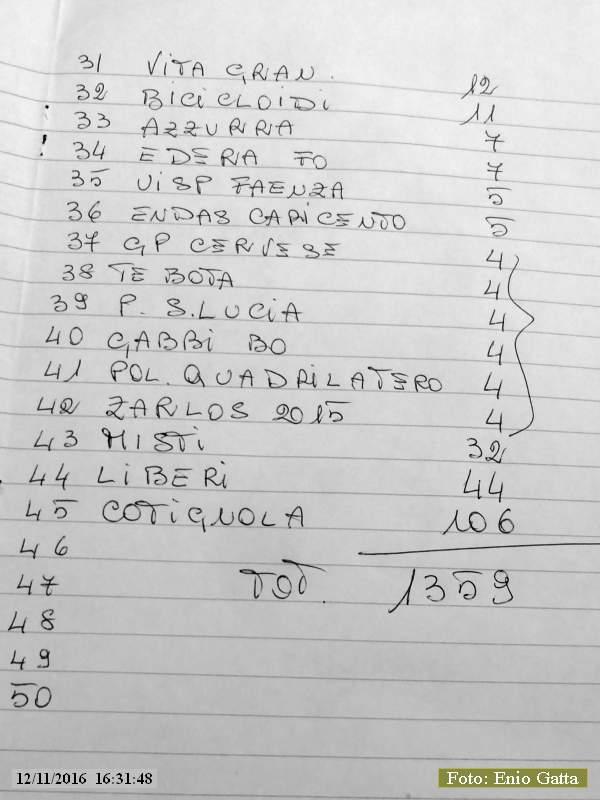 31 VITA GRAN. 12
32 BICICLOIDI 11
33 AZZURRA 7
! 34 EDERA FO 7
35 UISP FAENZA 5
36 ENDAS CAPICENTO 5
37 GP CERVESE 4
38 TE BOTA 4
39 P. S.LUCIA 4
40 GABBI BO 4
41 POL. QUADRILATERO 4
42 ZARLOS 2015 4
43 MISTI 32
44 LIBERI 44
45 COTIGNOLA 106
46
47 TOT. 1359
48
49
50
12/11/2016 16:31:48
Foto: Enio Gatta